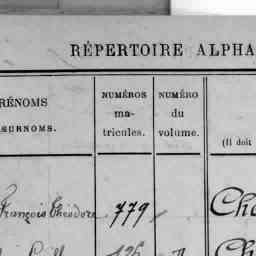 RÉPERTOIRE ALPHA
RÉNOMS
SURNOMS.
NUMÉROS
ma-
tricules.
NUMÉRO
du
volume.
(Il doit
François Théodore
779
Cha